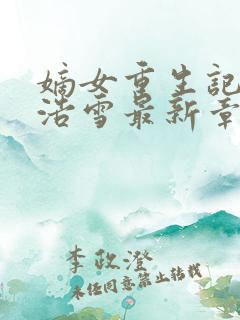 嫡女重生记
浩雪最新章
李政澄
未经同意禁止转载